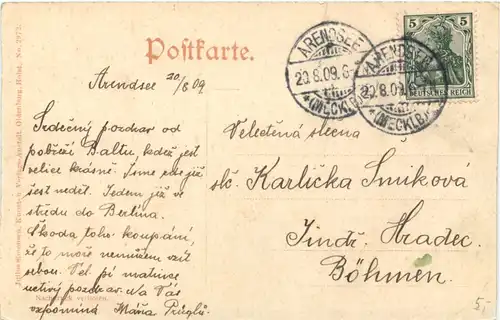 Postkarte.
ARENDSEE
20.8.09.6
*(MECKLB)*
ARENDSEE
20.8.09.6
*(MECKLB)*
5 5
DEUTSCHES REICH
Arendsee 20/8 09
Srdečný pozdrav od
pobřeží Baltu kdež jest
velice krásně. Jsme zde již
jest neděl. Jedem již v
středu do Berlina.
Škoda toho koupání,
že to moře nemůžem vzít
sebou. Vel. pí matince
uctivý pozdrav. Na Vás
vzpomíná Máňa
Velectěná slečna
slč. Karlička Smíková
Jindř. Hradec
Böhmen.
Nachdruck verboten.
5,-